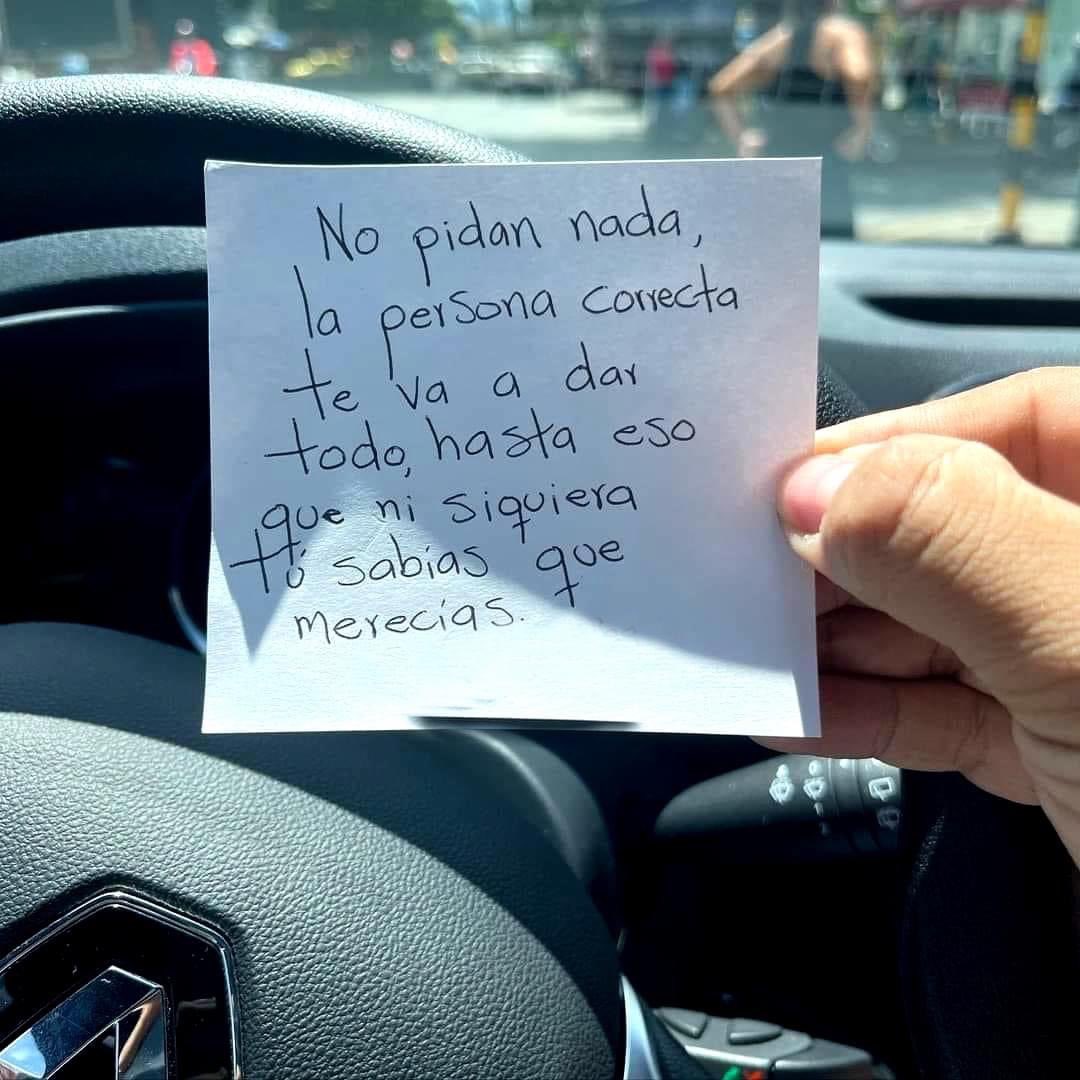 No pidan nada,
la persona correcta
te va a dar
todo, hasta eso
que ni siquiera
tú sabías que
merecías.